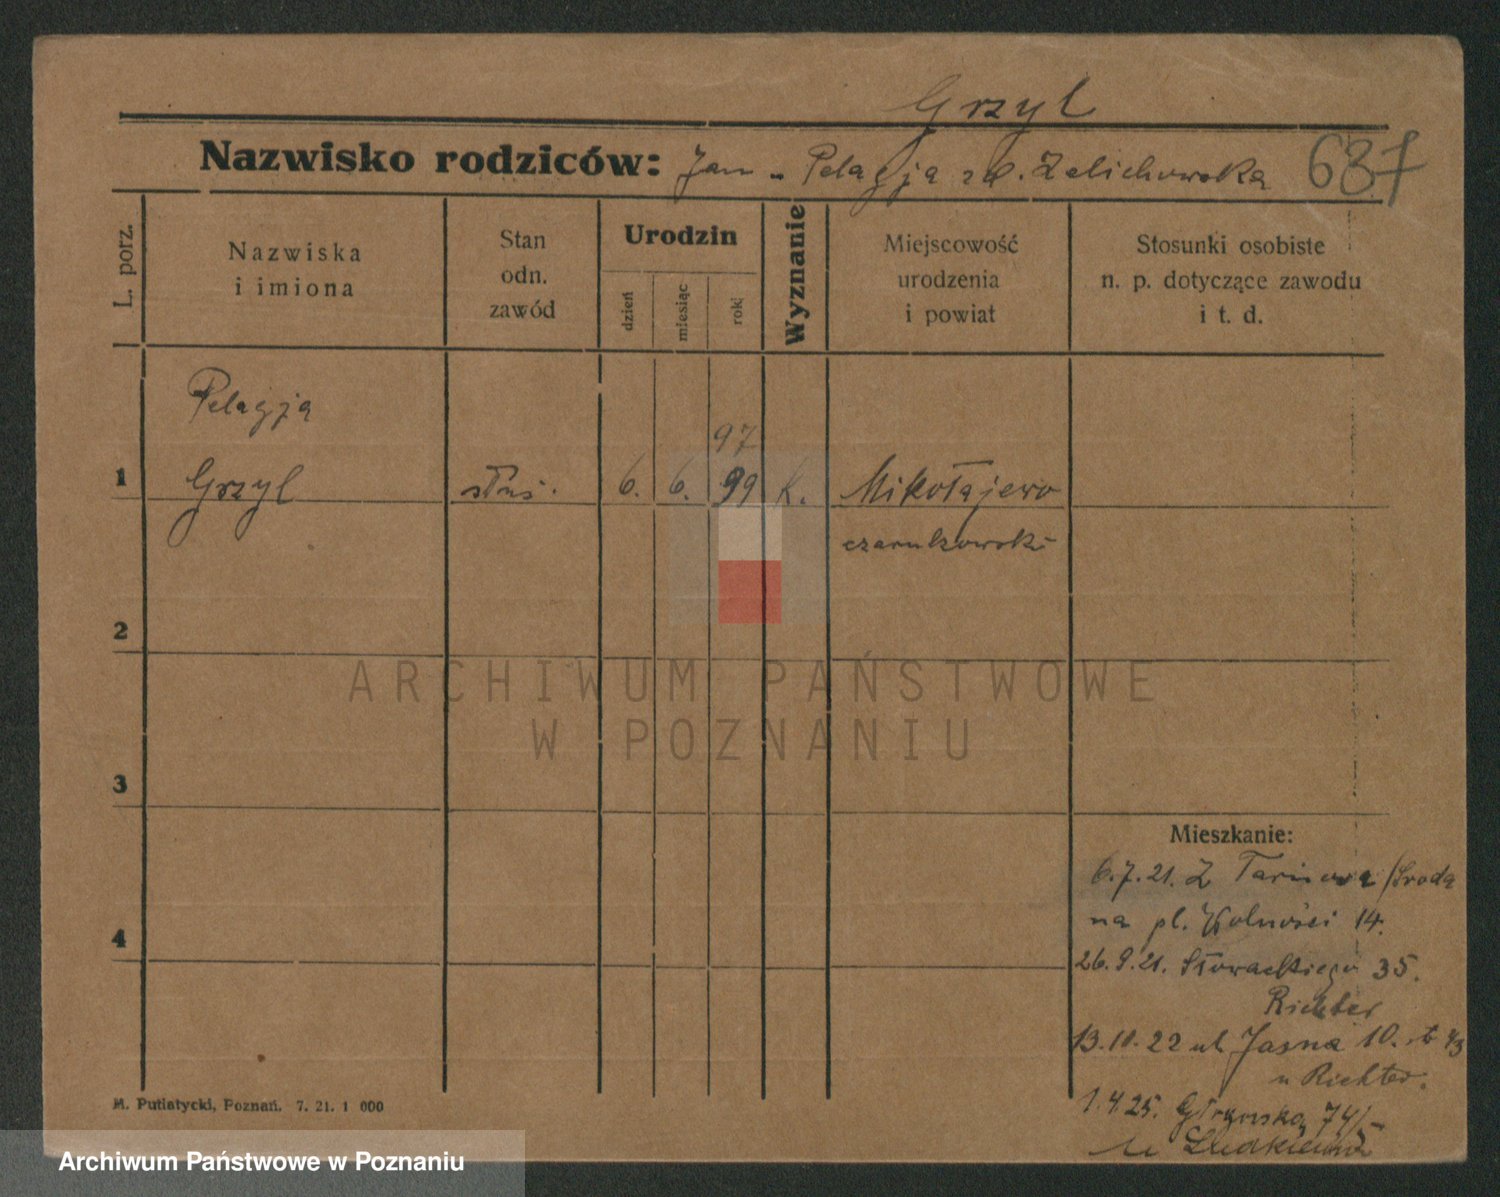 Grzyl
Nazwisko rodziców: Jan - Pelagja zd. Zelichowska 687
L. porz.
Nazwiska
i imiona
Stan
odn.
zawód
Urodzin
dzień
miesiąc
rok
Wyznanie
Miejscowość
urodzenia
i powiat
Stosunki osobiste
n. p. dotyczące zawodu
i t. d.
Pelagja
97
1 Grzyl służ. 6. 6. 99 k. Mikołajewo
czarnkowski
2
ARCHIWUM PAŃSTWOWE
W POZNANIU
3
Mieszkanie:
6.7.21. Z /Środa
na pl. Wolności 14.
4
26.9.21. Słowackiego 35.
Richter
13.10.22 ul Jasna 10.
u Richter.
1.4.25. 74/
u
M. Putiatycki, Poznań. 7. 21. 1 000
Archiwum Państwowe w Poznaniu